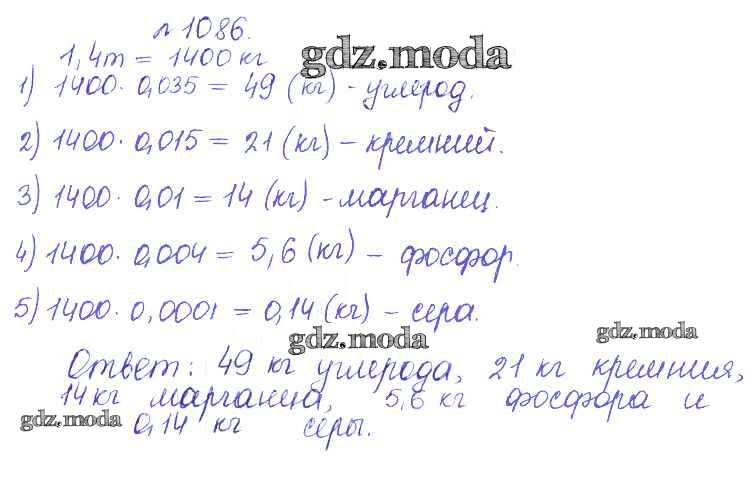 № 1086.
1,4т = 1400 кг
gdz.moda
1) 1400 · 0,035 = 49 (кг) - углерод.
2) 1400 · 0,015 = 21 (кг) - кремний.
3) 1400 · 0,01 = 14 (кг) - марганец.
4) 1400 · 0,004 = 5,6 (кг) - фосфор.
5) 1400 · 0,0001 = 0,14 (кг) - сера.
gdz.moda
gdz.moda
Ответ: 49 кг углерода, 21 кг кремния,
14 кг марганца, 5,6 кг фосфора и
gdz.moda
0,14 кг серы.